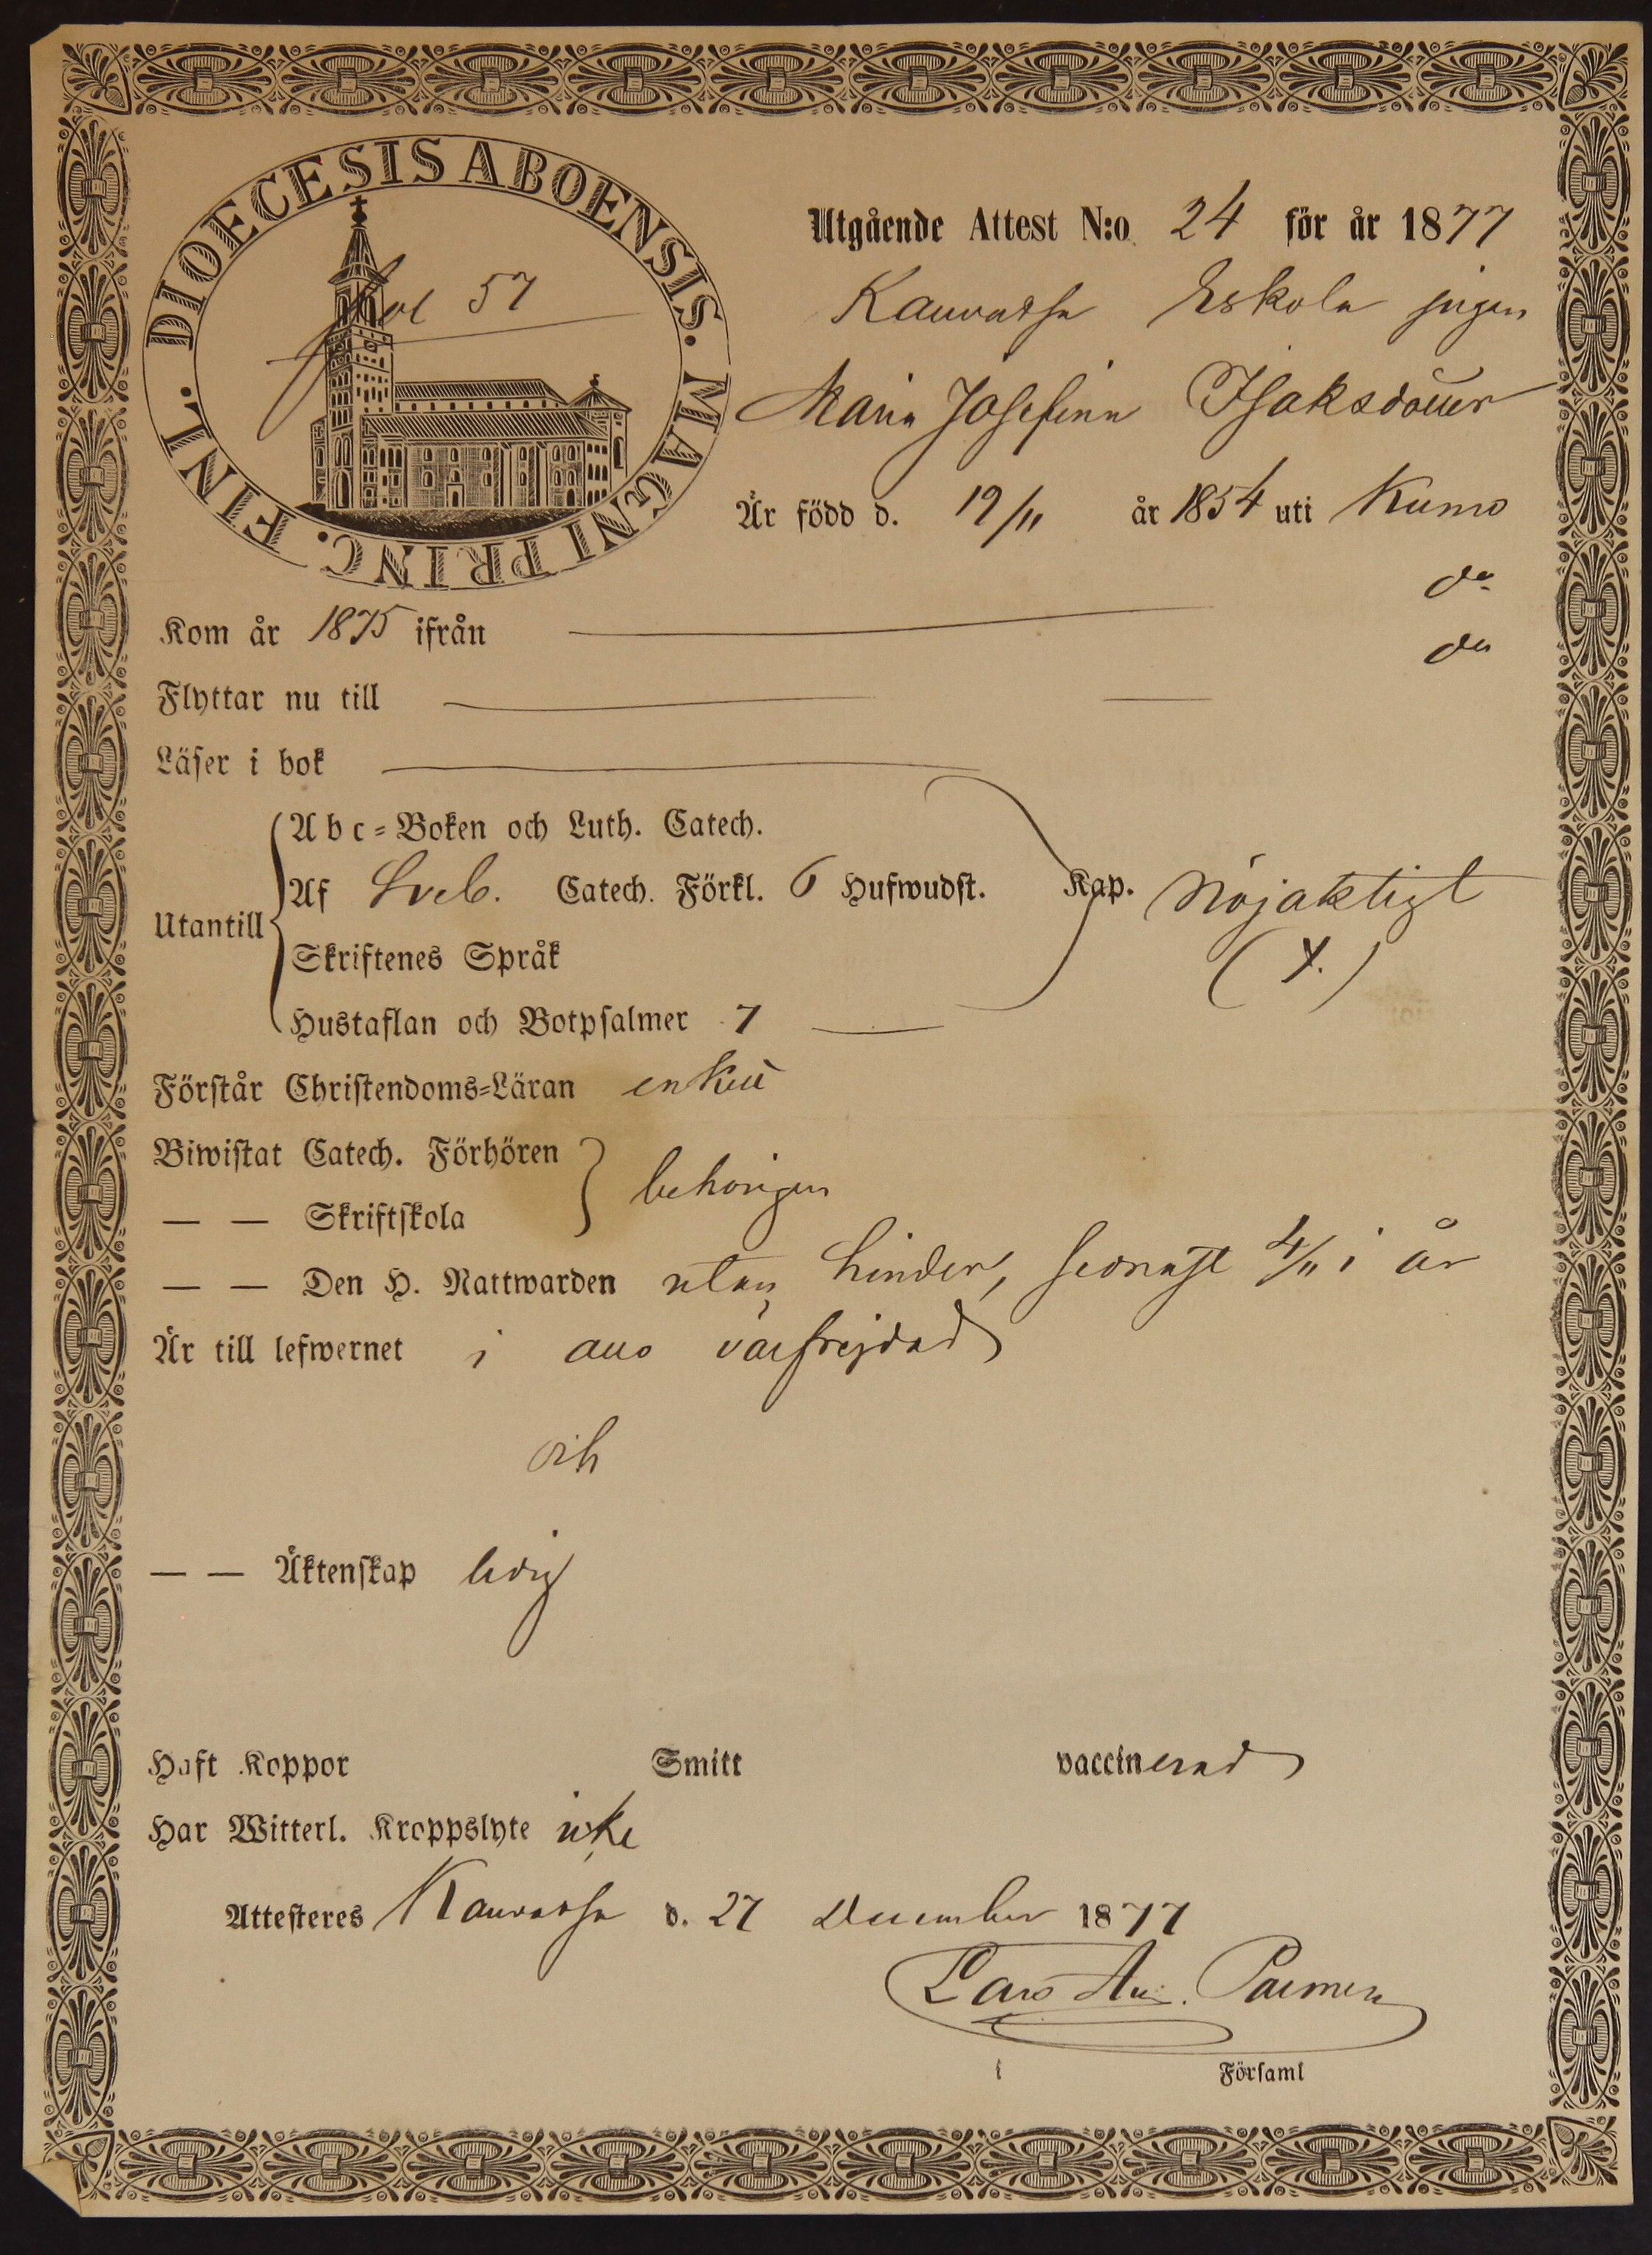 DIOECESIS ABOENSIS. MAGNI PRINC. FINL.
fol 57
Utgående Attest N:o 24 för år 1877
Kauvatsa Eskola pigan
Maria Josefina Isaksdotter
Är född d. 19/11 år 1854 uti Kumo
Kom år 1875 ifrån — do
Flyttar nu till — — do
Läser i bok —
Utantill
Abc-Boken och Luth. Catech.
Af Sveb. Catech. Förkl. 6 Hufwudst. Kap. Nöjaktigt
Skriftenes Språk
Hustaflan och Botpsalmer 7 —
Förstår Christendoms-Läran enkelt
Biwistat Catech. Förhören
— — Skriftskola
behörigen
— — Den H. Nattwarden utan hinder, sednast 4/11 i år
Är till lefwernet i allo välfrejdad
och
— — Äktenskap ledig
Haft Koppor Smitt vaccinerad
Har Witterl. Kroppslyte icke
Attesteres Kauvatsa d. 27 December 1877
Lars Palmén
i Församl